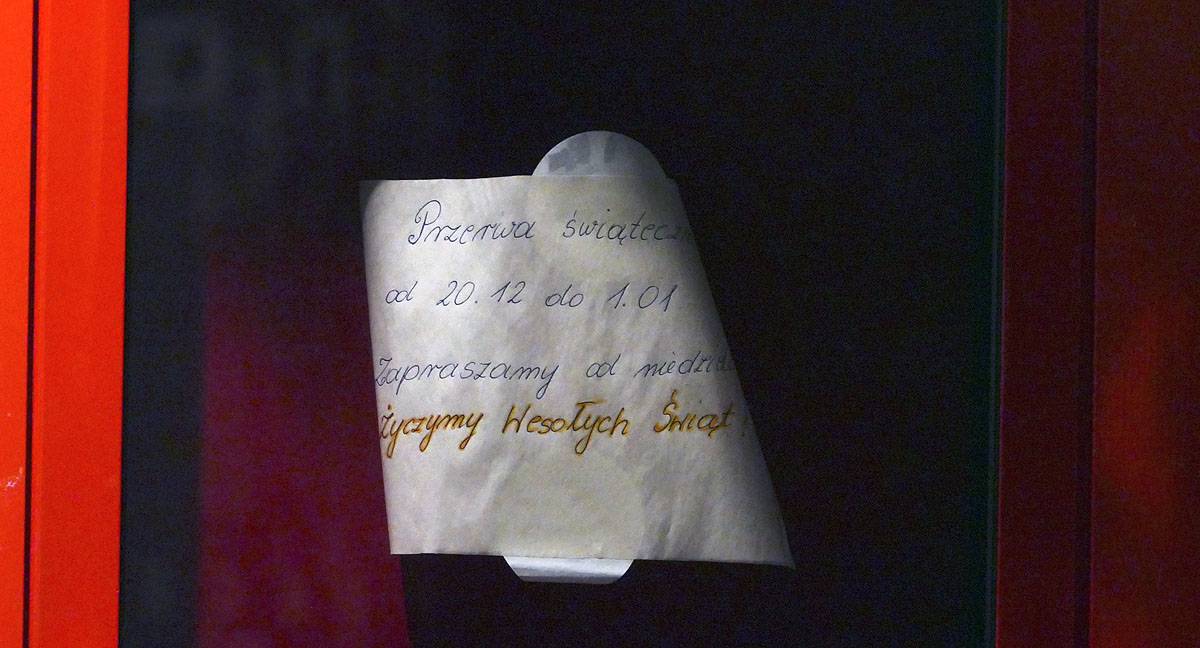 Przerwa świątecz
od 20.12 do 1.01
Zapraszamy od niedziel
Życzymy Wesołych Świąt!